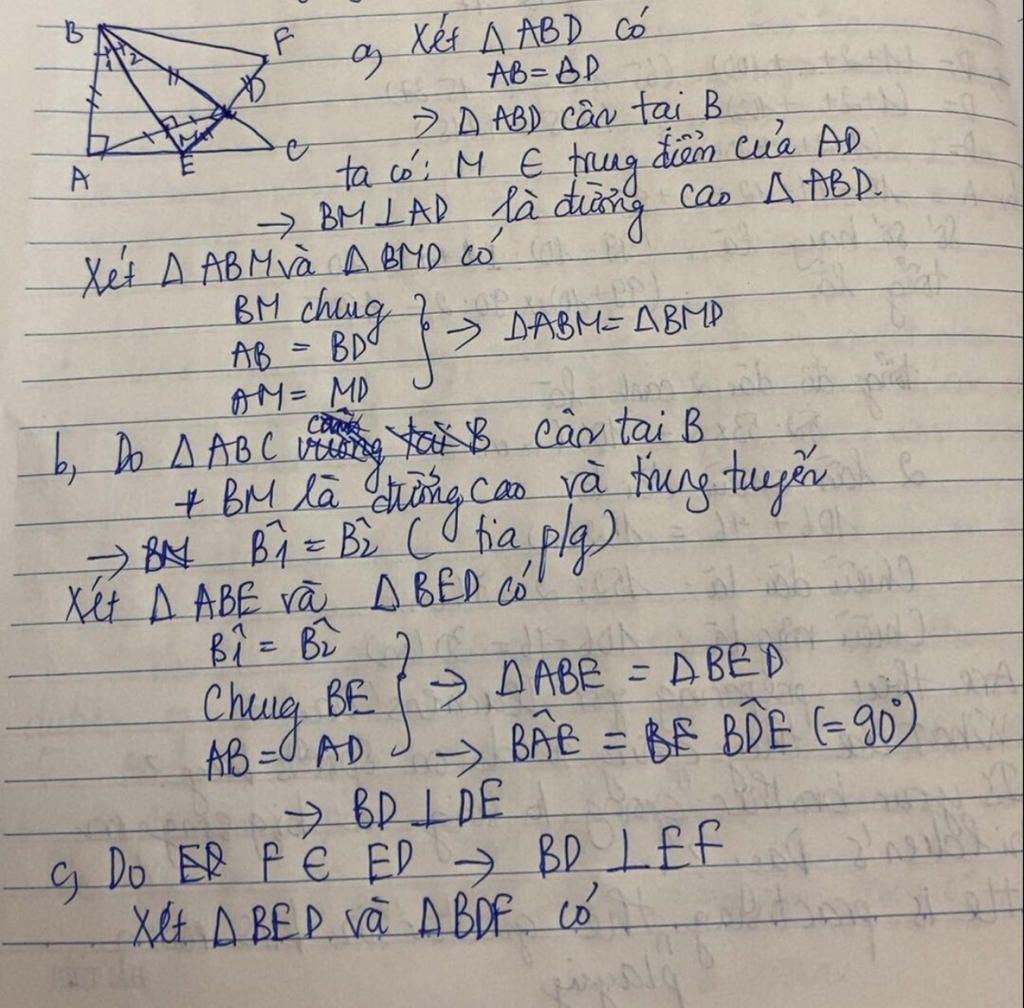 B
F
1
2
D
M
A
E
C
a, Xét Δ ABD có
AB = BD
→ Δ ABD cân tai B
ta có: M ∈ trung điểm của AD
→ BM ⊥ AD là đường cao Δ ABD.
Xét Δ ABM và Δ BMD có
BM chung
AB = BD
AM = MD
} → ΔABM = ΔBMD
b, Do Δ ABC cân tai B
+ BM là đường cao và trung tuyến
→ B̂1 = B̂2 ( tia p/g)
Xét Δ ABE và Δ BED có
B̂1 = B̂2
Chung BE
AB = AD
} → Δ ABE = Δ BED
→ BÂE = BD̂E (= 90°)
→ BD ⊥ DE
c, Do F ∈ ED → BD ⊥ EF
Xét Δ BED và Δ BDF có